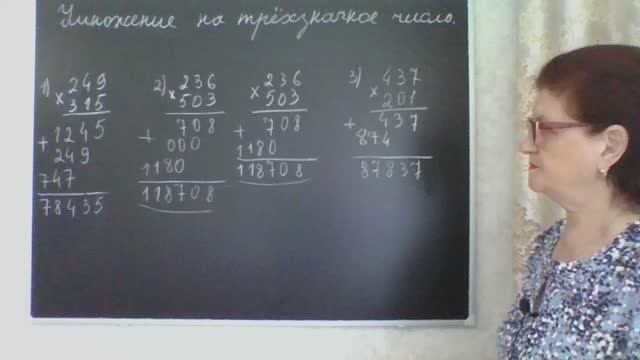 Умножение на трёхзначное число.
1) 249
× 315
+ 1245
249
747
78435
2) 236
× 503
+ 708
000
1180
118708
236
× 503
+ 708
1180
118708
3) 437
× 201
+ 437
874
87837